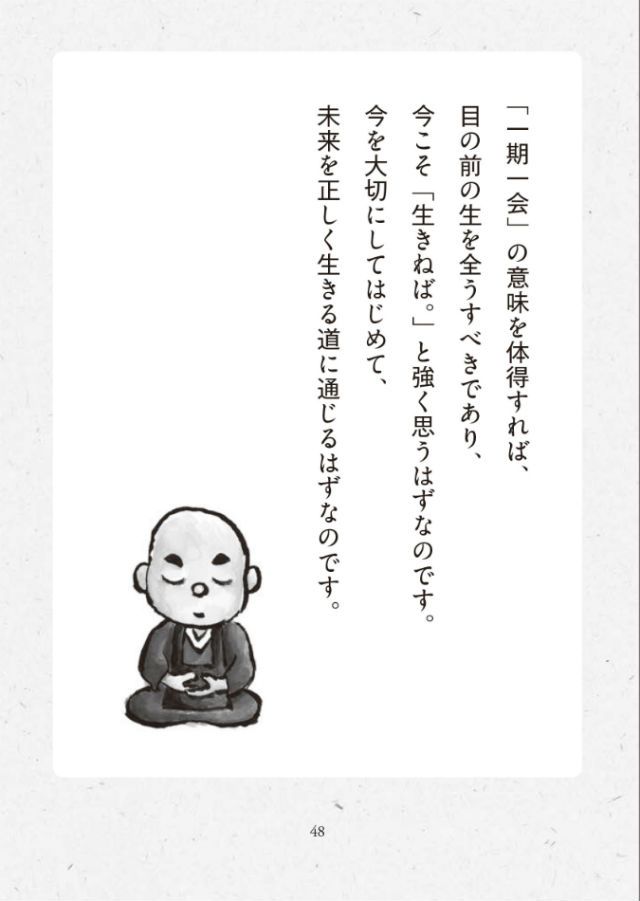 「一期一会」の意味を体得すれば、
目の前の生を全うすべきであり、
今こそ「生きねば。」と強く思うはずなのです。
今を大切にしてはじめて、
未来を正しく生きる道に通じるはずなのです。
48